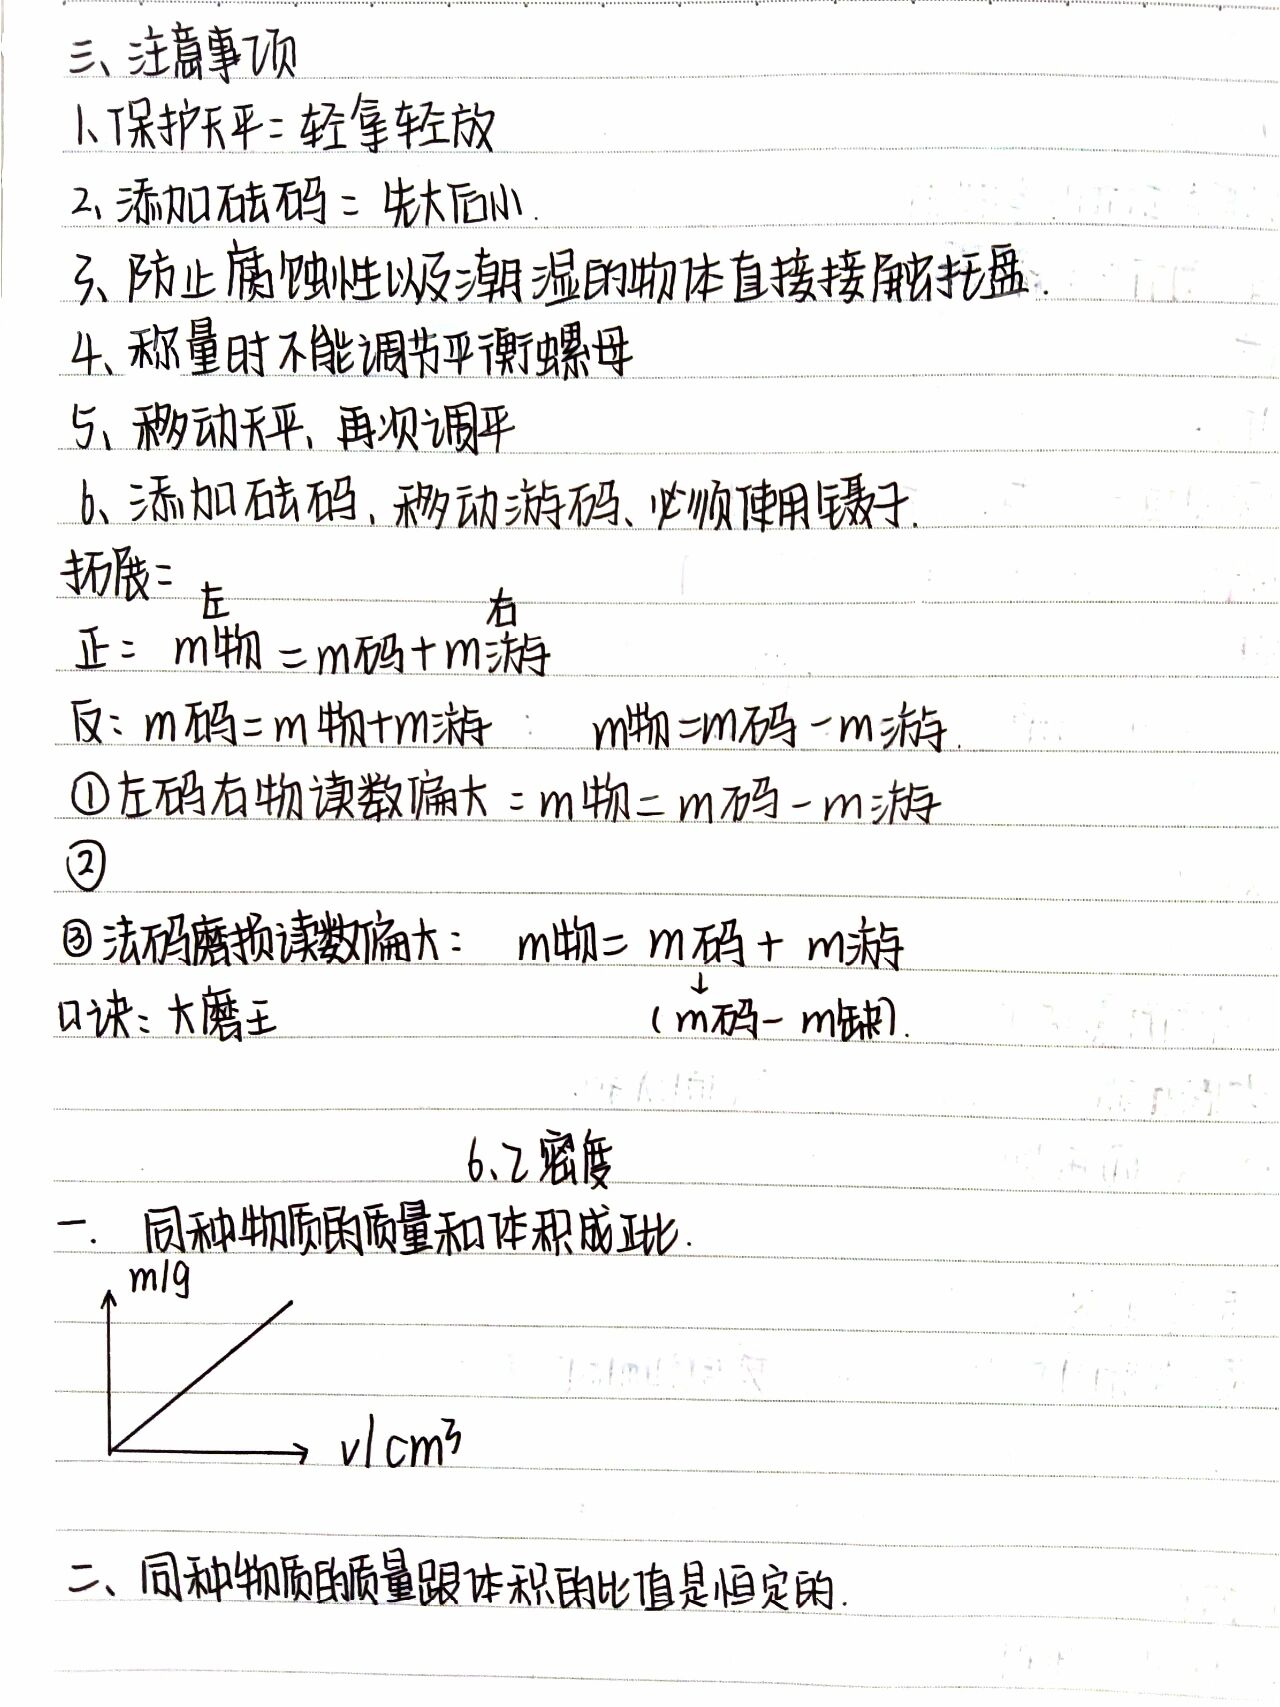 三、注意事项
1、保护天平：轻拿轻放
2、添加砝码：先大后小.
3、防止腐蚀性以及潮湿的物体直接接触托盘.
4、称量时不能调节平衡螺母
5、移动天平、再次调平
6、添加砝码、移动游码、必须使用镊子.
拓展：
左 右
正：m物=m码+m游
反：m码=m物+m游 m物=m码-m游.
①左码右物读数偏大：m物=m码-m游
②
③法码磨损读数偏大： m物=m码+m游
↓
口诀：大磨王 (m码-m缺).
6、2密度
一. 同种物质的质量和体积成正比.
m/g
v/cm³
二、同种物质的质量跟体积的比值是恒定的.